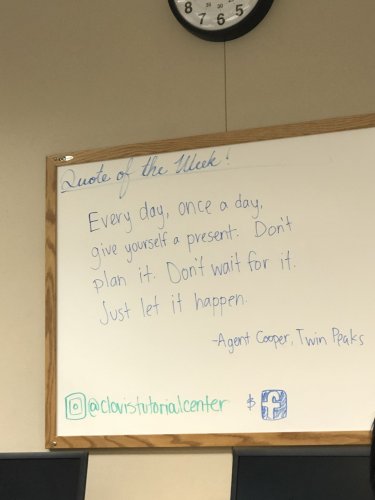 8 7 6 5
Quote of the Week!
Every day, once a day,
give yourself a present. Don't
plan it. Don't wait for it.
Just let it happen.
-Agent Cooper, Twin Peaks
@clovistutorialcenter $ f